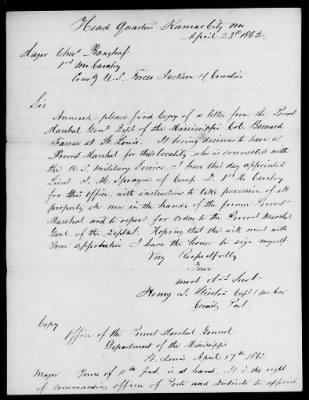 Head Quarters Kansas City Mo
April 23d 1862.
Major Chas Banzhaf
1st Mo Cavalry
Comdg U.S. Forces Jackson & Counties
Sir
Annexed please find Copy of a letter from the Provost
Marshal Genl Dept of the Mississippi Col. Bernard
Farrar at St Louis. It being desirous to have a
Provost Marshal for this locality who is connected with
the U.S. Military Service. I have this day appointed
Lieut J. M. Sprague of Comp D. 1st M. Cavalry
for this office with instructions to take possession of all
property &c now in the hands of the former Provost
Marshal and to report for orders to the Provost Marshl
Genl of the Deptmt. Hoping that this will meet with
Your approbation I have the honor to sign myself
Very Respectfully
Your
most obt Servt
Henry J. Capt 1 Mo Cav
Comdg Post.
Copy
Office of the Provost Marshal General
Department of the Mississippi
St. Louis April 17th 1862.
Major Yours of 11th Inst. is at hand. It is the right
of commanding officers of Posts and Districts to appoint